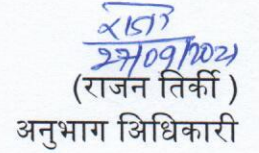 27/09/2021
(राजन तिर्की )
अनुभाग अिधिकारी